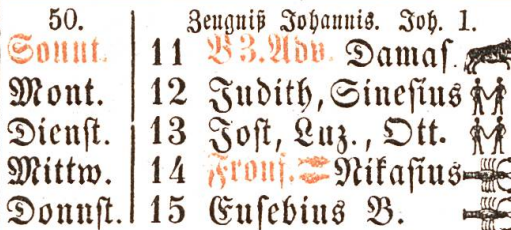 50. Zeugniß Johannis. Joh. 1.
Sonnt. 11 B 3. Adv. Damas.
Mont. 12 Judith, Sinesius
Dienst. 13 Jost, Luz., Ott.
Mittw. 14 Fronf. Nikasius
Donnst. 15 Eusebius B.